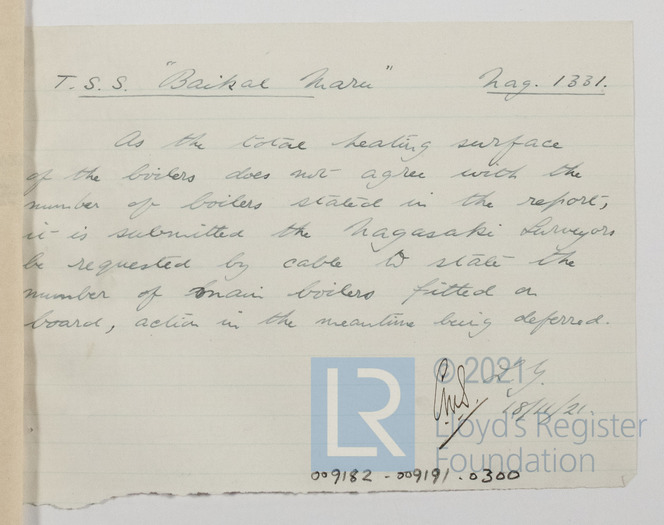 T.S.S. "Baikal Maru" Nag. 1331.
As the total heating surface
of the boilers does not agree with the
number of boilers stated in the report,
it is submitted the Nagasaki Surveyors
be requested by cable to state the
number of main boilers fitted on
board, action in the meantime being deferred.
© 2021
18/11/21.
LR
Lloyd's Register
Foundation
009182 - 009191 - 0300